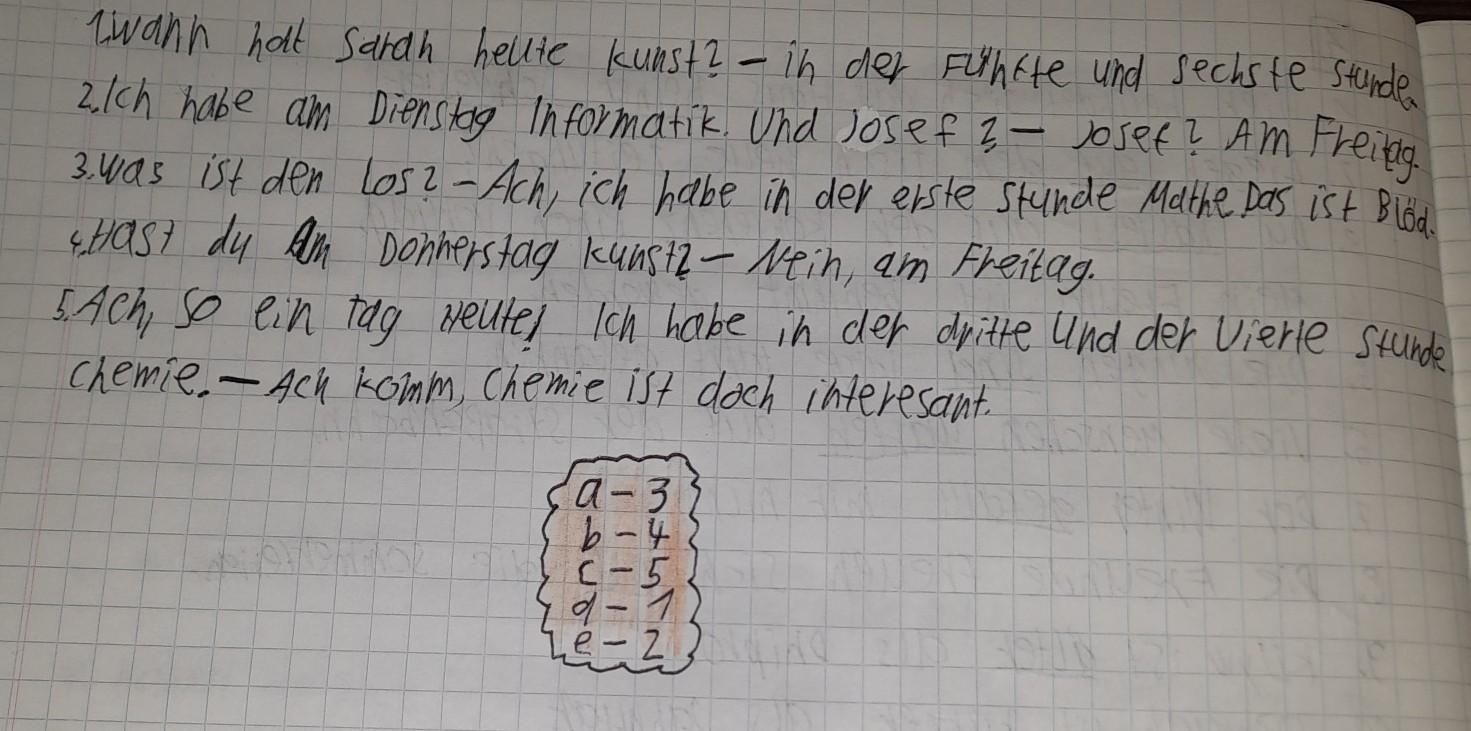 1.Wann hat Sarah heute kunst? – in der Fünfte und sechste stunde.
2.Ich habe am Dienstag Informatik. Und Josef? – Josef? Am Freitag.
3.was ist den los? – Ach, ich habe in der erste Stunde Mathe Das ist Blöd.
4.Hast du Am Donnerstag kunst? – Nein, am Freitag.
5.Ach, so ein Tag Heute! Ich habe in der dritte Und der Vierte Stunde
chemie. – Ach komm, Chemie ist doch interesant.
a – 3
b – 4
c – 5
d – 1
e – 2